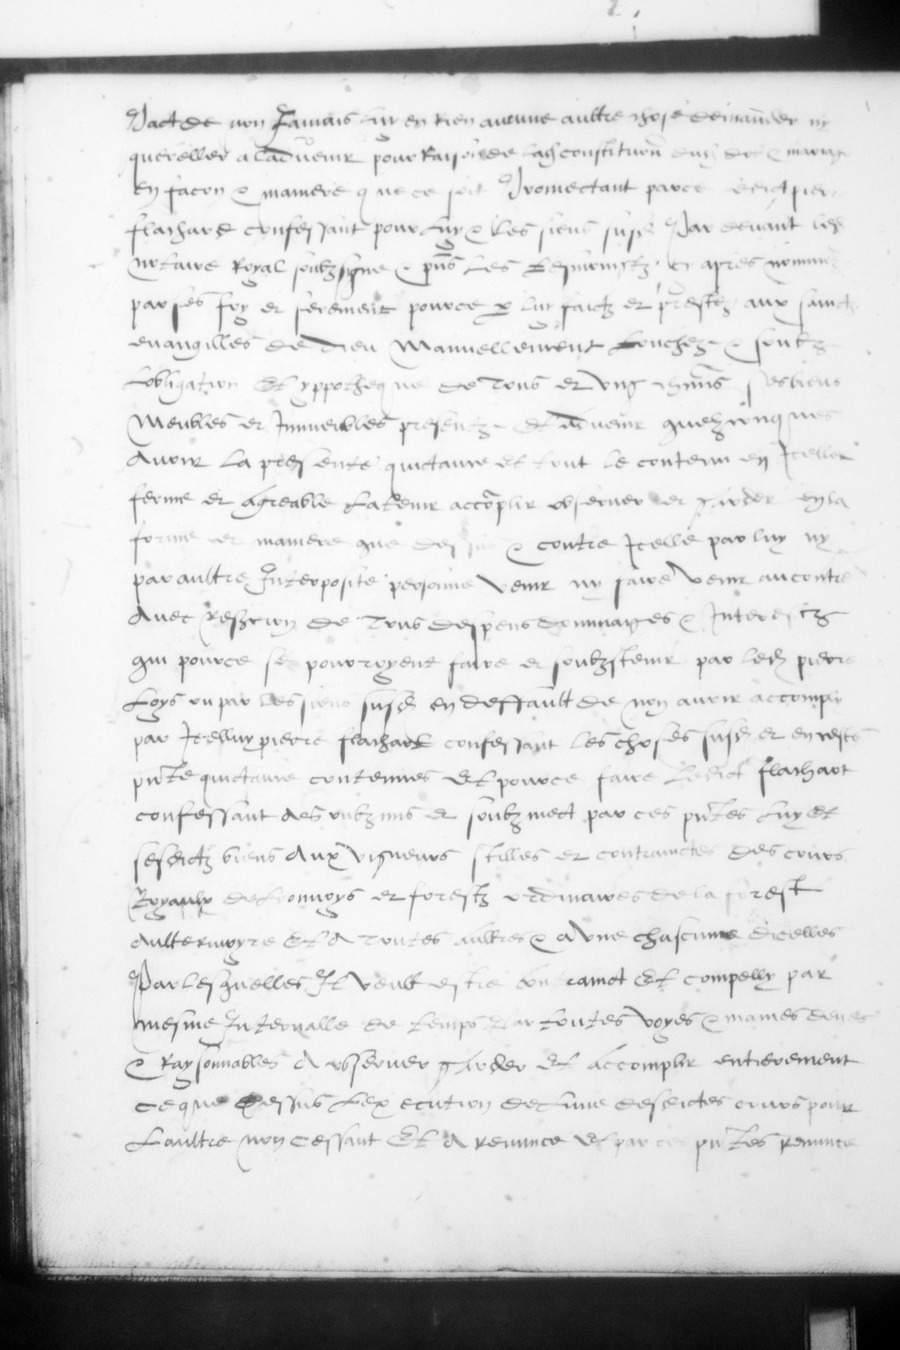 Pact de non Jamais luy en rien aucune aultre chose demander ny
quereller a ladvenir pour Raison de lad constitution dud dot & mariage
en facon & maniere que ce soit Promectant par ce ledict pierre
flachard confessant pour luy & les siens susd Par devant led
notaire Royal soubzsigne & pns les tesmoingtz cy apres nommez
par ses foy et serement pource par luy faictz et prestez aux sainctz
evangilles de dieu Manuellement touchez & soubz
Lobligation Et yppothecque de tous et ung chascuns ses biens
Meubles et Immeubles presentz Et advenir quelzconques
Avoir La presente quictance et tout le contenu en Icelle
ferme et agreable La tenir accomplir observer et garder en la
forme et maniere que dessus & contre Icelle par luy ny
par aultre Interposite personne venir ny faire venir au contre
Avec reffection de tous despens dommaiges & Interestz
qui pource se pourroyent faire et soubzstenir par led pierre
Loys ou par les siens susd en deffault de non avoir accomply
par Icelluy pierre flachard confessant les choses susd et en ceste
pnte quictance contenues Et pource faire Ledict flachart
confessant Aes soubzmis et soubzmect par ces pntes luy Et
sesdictz biens Aux vigueurs stilles et contrainctes des cours
Royaulx de Lionnoys et forestz ordinaires de la forest
Aultermoyre Et A toutes aultres & a une chascune dicelles
Par lesquelles Il veult estre contrainct Et compelly par
mesme Intervalle de temps Par toutes voyes & manieres deues
& Raysonnables A observer garder Et accomplir entierement
ce que dessus Lexecution de Lune desdictes cours pour
Laultre non cessant Et A renunce Et par ces pntes renunce